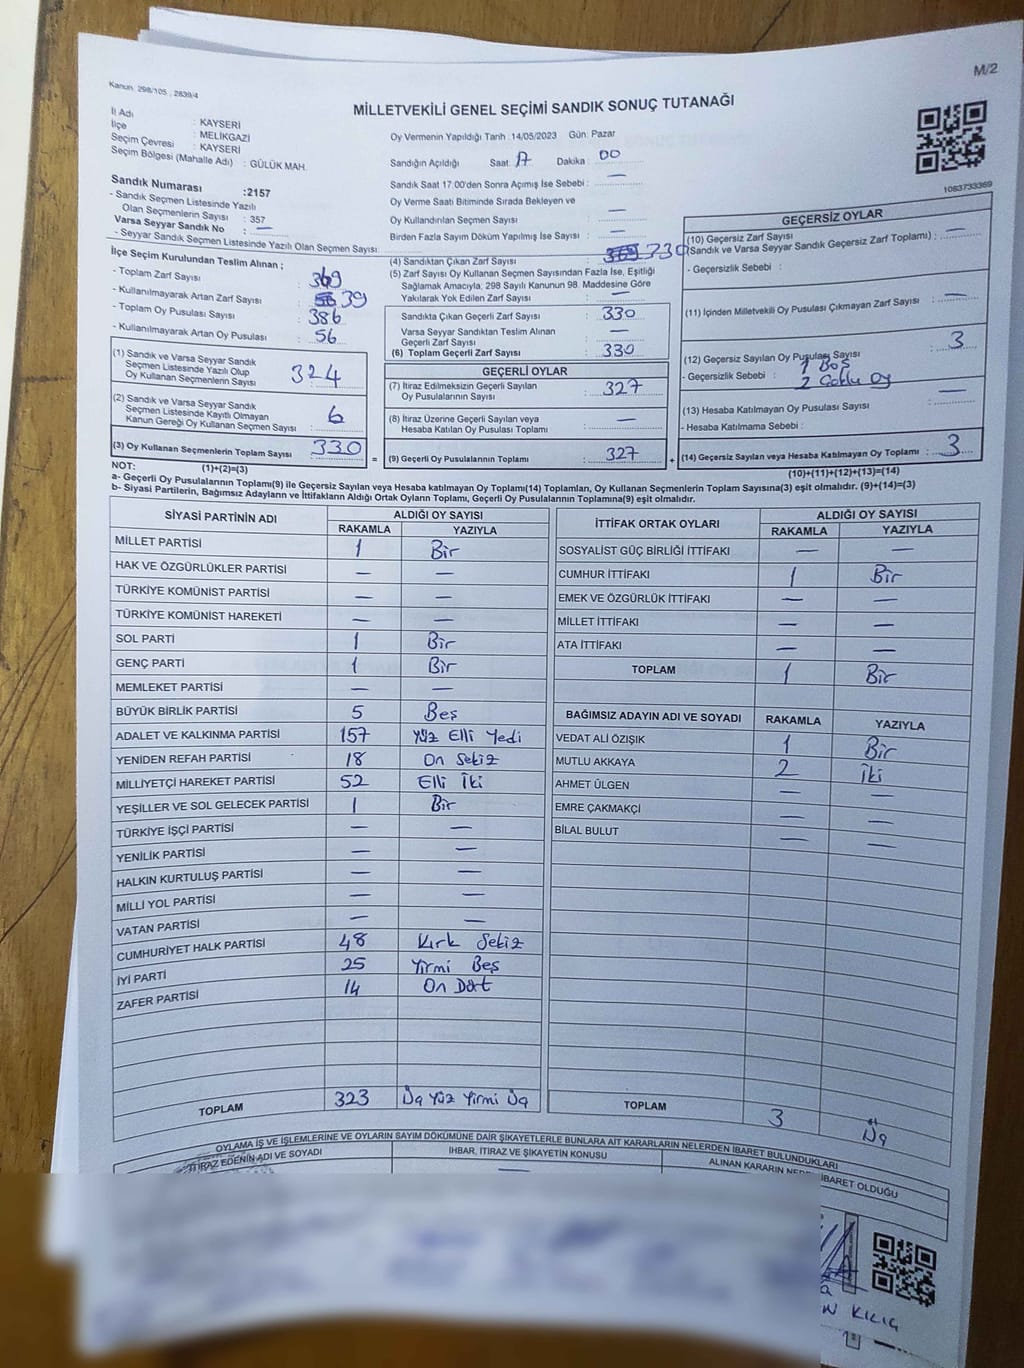 M/2
Kanun 298/105 , 2839/4
MİLLETVEKİLİ GENEL SEÇİMİ SANDIK SONUÇ TUTANAĞI
İl Adı : KAYSERİ
İlçe : MELİKGAZİ
Seçim Çevresi : KAYSERİ
Seçim Bölgesi (Mahalle Adı) : GÜLÜK MAH.
Sandık Numarası :2157
- Sandık Seçmen Listesinde Yazılı
Olan Seçmenlerin Sayısı : 357
Varsa Seyyar Sandık No : —
- Seyyar Sandık Seçmen Listesinde Yazılı Olan Seçmen Sayısı:
İlçe Seçim Kurulundan Teslim Alınan ;
- Toplam Zarf Sayısı : 369
- Kullanılmayarak Artan Zarf Sayısı : 39
- Toplam Oy Pusulası Sayısı : 386
- Kullanılmayarak Artan Oy Pusulası : 56
(1) Sandık ve Varsa Seyyar Sandık
Seçmen Listesinde Yazılı Olup
Oy Kullanan Seçmenlerin Sayısı : 324
(2) Sandık ve Varsa Seyyar Sandık
Seçmen Listesinde Kayıtlı Olmayan
Kanun Gereği Oy Kullanan Seçmen Sayısı : 6
(3) Oy Kullanan Seçmenlerin Toplam Sayısı : 330 =
Oy Vermenin Yapıldığı Tarih :14/05/2023 Gün: Pazar
Sandığın Açıldığı Saat: 17 Dakika : 00
Sandık Saat 17.00'den Sonra Açımış İse Sebebi : —
Oy Verme Saati Bitiminde Sırada Bekleyen ve
Oy Kullandırılan Seçmen Sayısı : —
Birden Fazla Sayım Döküm Yapılmış İse Sayısı : —
(4) Sandıktan Çıkan Zarf Sayısı : 330
(5) Zarf Sayısı Oy Kullanan Seçmen Sayısından Fazla İse, Eşitliği
Sağlamak Amacıyla; 298 Sayılı Kanunun 98. Maddesine Göre
Yakılarak Yok Edilen Zarf Sayısı : —
Sandıkta Çıkan Geçerli Zarf Sayısı : 330
Varsa Seyyar Sandıktan Teslim Alınan
Geçerli Zarf Sayısı : —
(6) Toplam Geçerli Zarf Sayısı : 330
GEÇERLİ OYLAR
(7) İtiraz Edilmeksizin Geçerli Sayılan
Oy Pusulalarının Sayısı : 327
(8) İtiraz Üzerine Geçerli Sayılan veya
Hesaba Katılan Oy Pusulası Toplamı : —
(9) Geçerli Oy Pusulalarının Toplamı : 327 +
1083733369
GEÇERSİZ OYLAR
(10) Geçersiz Zarf Sayısı
(Sandık ve Varsa Seyyar Sandık Geçersiz Zarf Toplamı) : —
- Geçersizlik Sebebi :
(11) İçinden Milletvekili Oy Pusulası Çıkmayan Zarf Sayısı : —
(12) Geçersiz Sayılan Oy Pusulası Sayısı : 3
- Geçersizlik Sebebi : 1 Boş
2 Çoklu Oy
(13) Hesaba Katılmayan Oy Pusulası Sayısı : —
- Hesaba Katılmama Sebebi :
(14) Geçersiz Sayılan veya Hesaba Katılmayan Oy Toplamı : 3
NOT: (1)+(2)=(3) (10)+(11)+(12)+(13)=(14)
a- Geçerli Oy Pusulalarının Toplamı(9) ile Geçersiz Sayılan veya Hesaba katılmayan Oy Toplamı(14) Toplamları, Oy Kullanan Seçmenlerin Toplam Sayısına(3) eşit olmalıdır. (9)+(14)=(3)
b- Siyasi Partilerin, Bağımsız Adayların ve İttifakların Aldığı Ortak Oyların Toplamı, Geçerli Oy Pusulalarının Toplamına(9) eşit olmalıdır.
SİYASİ PARTİNİN ADI ALDIĞI OY SAYISI
RAKAMLA YAZIYLA
MİLLET PARTİSİ 1 Bir
HAK VE ÖZGÜRLÜKLER PARTİSİ — —
TÜRKİYE KOMÜNİST PARTİSİ — —
TÜRKİYE KOMÜNİST HAREKETİ — —
SOL PARTİ 1 Bir
GENÇ PARTİ 1 Bir
MEMLEKET PARTİSİ — —
BÜYÜK BİRLİK PARTİSİ 5 Beş
ADALET VE KALKINMA PARTİSİ 157 Yüz Elli Yedi
YENİDEN REFAH PARTİSİ 18 On Sekiz
MİLLİYETÇİ HAREKET PARTİSİ 52 Elli İki
YEŞİLLER VE SOL GELECEK PARTİSİ 1 Bir
TÜRKİYE İŞÇİ PARTİSİ — —
YENİLİK PARTİSİ — —
HALKIN KURTULUŞ PARTİSİ — —
MİLLİ YOL PARTİSİ — —
VATAN PARTİSİ — —
CUMHURİYET HALK PARTİSİ 48 Kırk Sekiz
İYİ PARTİ 25 Yirmi Beş
ZAFER PARTİSİ 14 On Dört
TOPLAM 323 Üç Yüz Yirmi Üç
İTTİFAK ORTAK OYLARI ALDIĞI OY SAYISI
RAKAMLA YAZIYLA
SOSYALİST GÜÇ BİRLİĞİ İTTİFAKI — —
CUMHUR İTTİFAKI 1 Bir
EMEK VE ÖZGÜRLÜK İTTİFAKI — —
MİLLET İTTİFAKI — —
ATA İTTİFAKI — —
TOPLAM 1 Bir
BAĞIMSIZ ADAYIN ADI VE SOYADI RAKAMLA YAZIYLA
VEDAT ALİ ÖZIŞIK 1 Bir
MUTLU AKKAYA 2 İki
AHMET ÜLGEN — —
EMRE ÇAKMAKÇİ — —
BİLAL BULUT — —
TOPLAM 3 Üç
OYLAMA İŞ VE İŞLEMLERİNE VE OYLARIN SAYIM DÖKÜMÜNE DAİR ŞİKAYETLERLE BUNLARA AİT KARARLARIN NELERDEN İBARET BULUNDUKLARI
İTİRAZ EDENİN ADI VE SOYADI İHBAR, İTİRAZ VE ŞİKAYETİN KONUSU ALINAN KARARIN İBARET OLDUĞU
—
KILIÇ